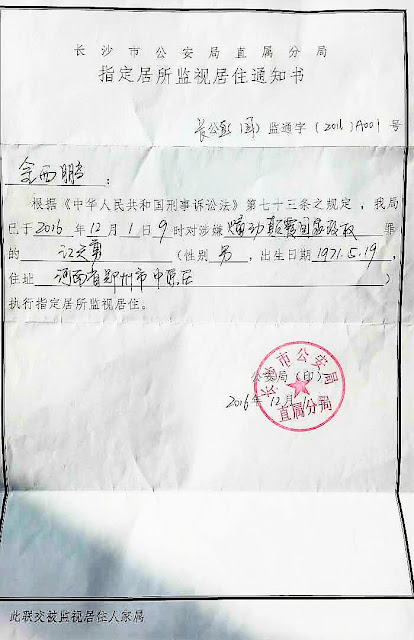 长沙市公安局直属分局
指定居所监视居住通知书
长公直(国)监通字〔2016〕A001号
:
根据《中华人民共和国刑事诉讼法》第七十三条之规定,我局
已于2016年12月1日9时对涉嫌煽动颠覆国家政权罪
的江天勇(性别男,出生日期1971.5.19,
住址河南省郑州市中原区)
执行指定居所监视居住。
公安局(印)
2016年12月1日
长沙市公安局
直属分局
此联交被监视居住人家属